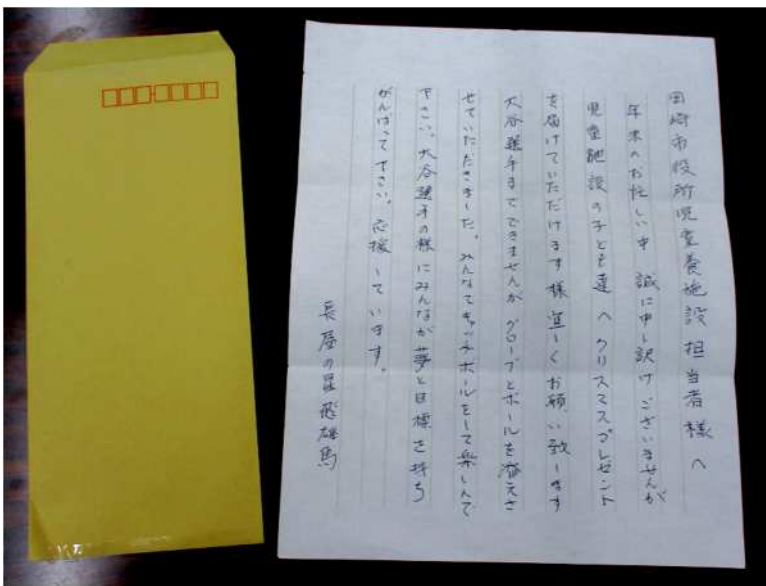 岡崎市役所児童養施設担当者様へ
年末のお忙しい中 誠に申し訳けございませんが
児童施設の子ども達へクリスマスプレゼント
を届けていただけます様宜しくお願い致します
大谷選手までできませんが グローブとボールを添えさ
せていただきました。みんなでキャッチボールをして楽しんで
下さい。大谷選手の様にみんなが夢と目標を持ち
がんばって下さい。応援しています。
長屋の星飛雄馬